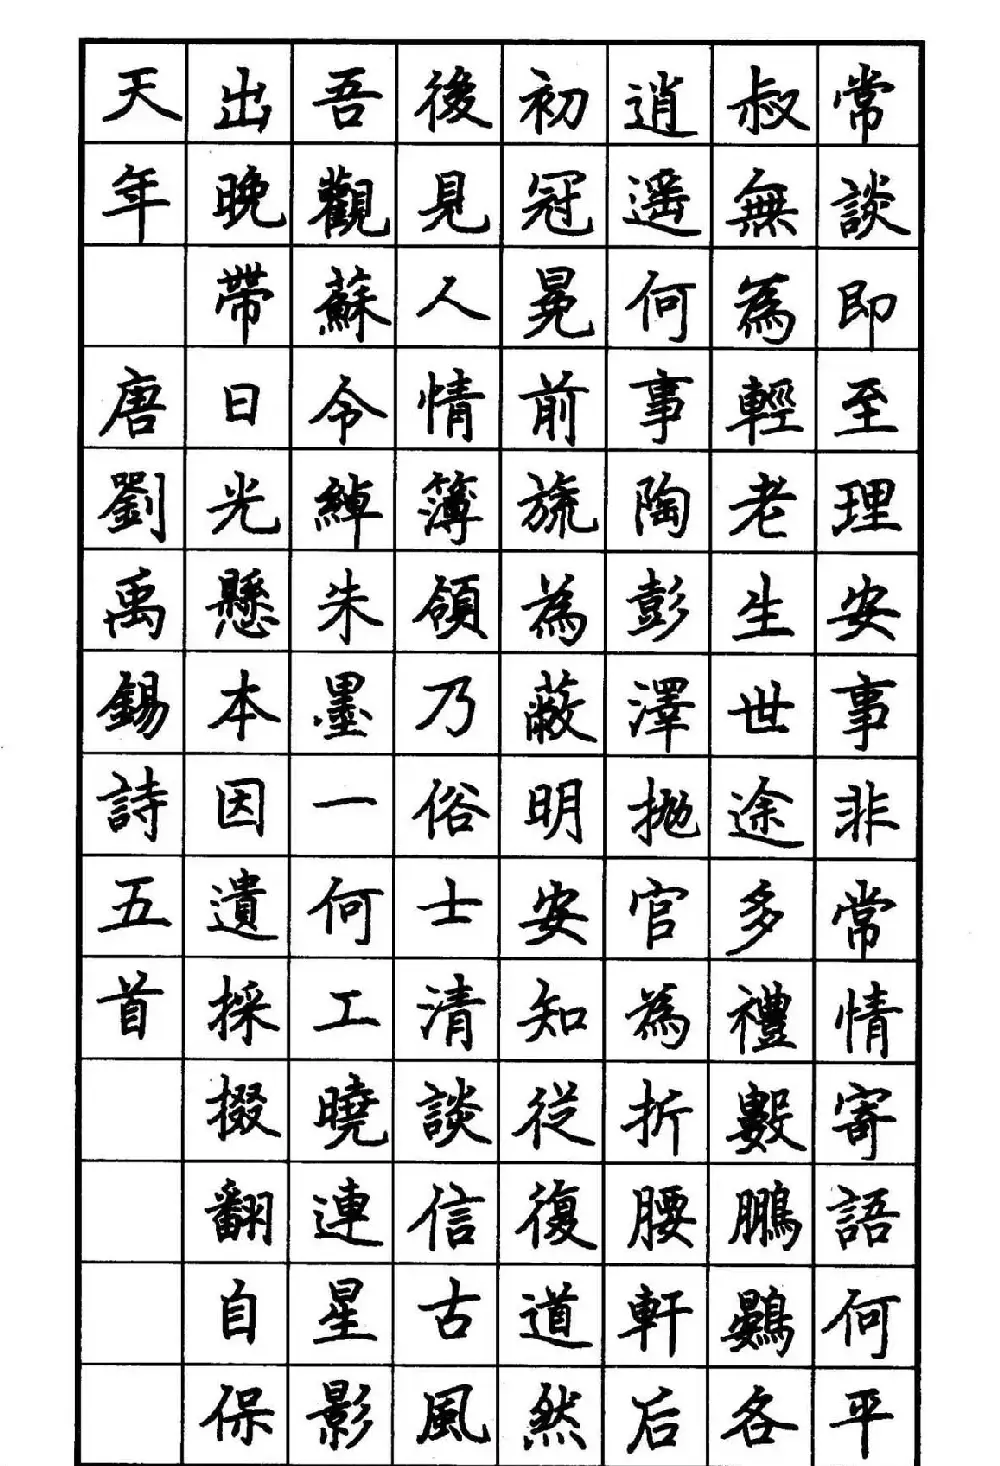 常談即至理安事非常情寄語何平
叔無為輕老生世途多禮數鵬鷃各
逍遥何事陶彭澤抛官為折腰軒后
初冠冕前旒為蔽明安知從復道然
後見人情簿領乃俗士清談信古風
吾觀蘇令綽朱墨一何工曉連星影
出晚帶日光懸本因遺採掇翻自保
天年
唐劉禹錫詩五首